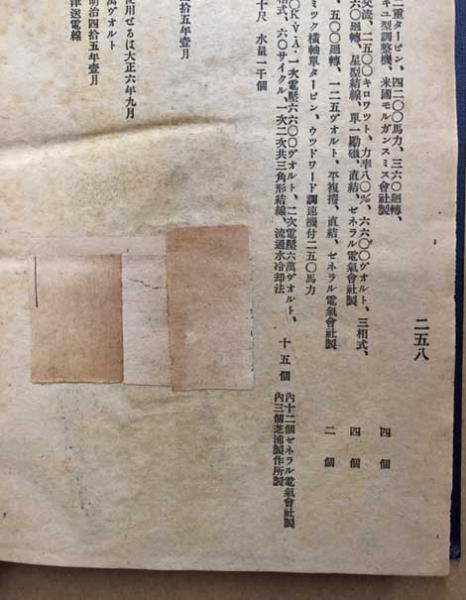 二五八
二重タービン、四二〇〇馬力、三六〇廻轉、
キユ型調整機、米國モルガンスミス會社製 四個
交流、二五〇〇キロワツト、力率八〇%、六六〇〇ヴオルト、三相式、
六〇廻轉、星型結線、單一勵磁、直結、ゼネラル電氣會社製 四個
、五〇〇廻轉、一二五ヴオルト、平複捲、直結、ゼネラル電氣會社製
ミツク橫軸單タービン、ウツドワード調速機付二五〇馬力 二個
〇K.V.A.一次電壓六六〇〇ヴオルト、二次電壓六萬ヴオルト、
格式、六〇サイクル、一次二次共三角形結線、流通水冷却法
十五個 內十二個ゼネラル電氣會社製
內三個芝浦製作所製
十尺 水量一千個
拾五年壹月
使用せるは大正六年九月
ヴオルト
明治四拾五年壹月
津送電線